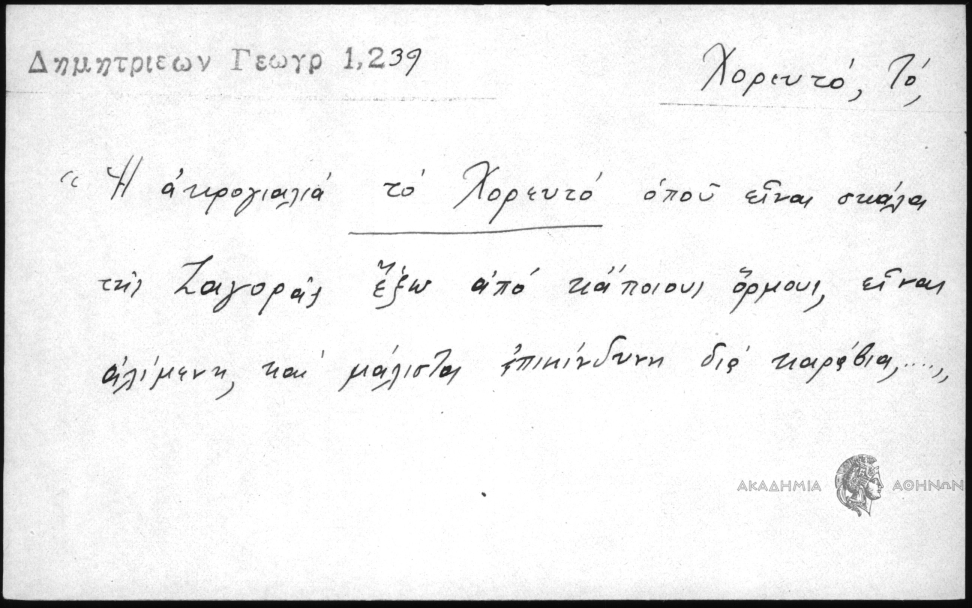 Δημητριεων Γεωγρ 1,239
Χορευτό, Τό,
"Ἡ ἀκρογιαλιά τό Χορευτό ὁποῦ εἶναι σκάλα
τῆς Ζαγορᾶς ἔξω ἀπό κάποιους ὅρμους, εἶναι
ἀλίμενη, καί μάλιστα ἐπικίνδυνη διά καράβια,....,,
ΑΚΑΔΗΜΙΑ ΑΘΗΝΩΝ